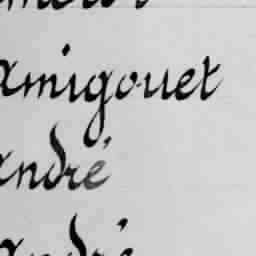 Amigouet
André
André